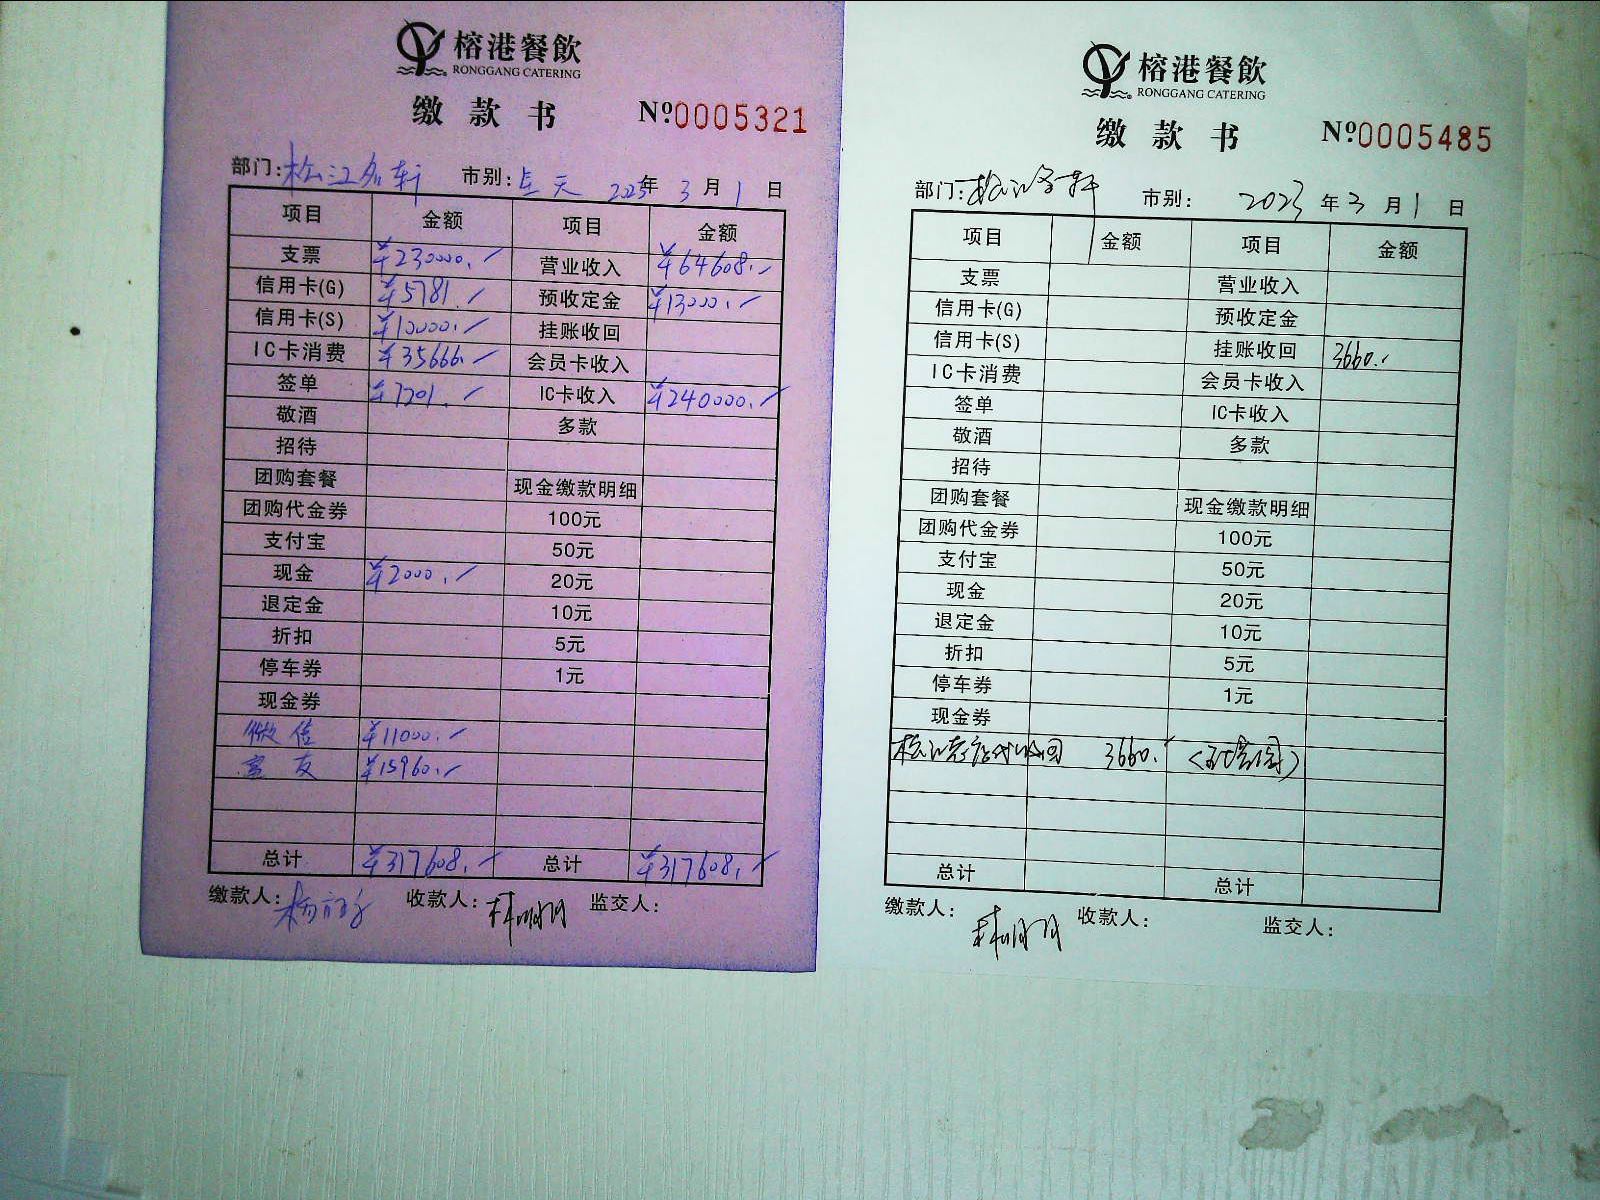 榕港餐飲
RONGGANG CATERING
缴款书 Nº0005321
部门:松江名轩 市别:全天 2023年3月1日
项目 金额 项目 金额
支票 ¥230000.- 营业收入 ¥64608.-
信用卡(G) ¥5781.- 预收定金 ¥13000.-
信用卡(S) ¥10000.- 挂账收回
IC卡消费 ¥35666.- 会员卡收入
签单 ¥7201.- IC卡收入 ¥240000.-
敬酒 多款
招待
团购套餐 现金缴款明细
团购代金券 100元
支付宝 50元
现金 ¥2000.- 20元
退定金 10元
折扣 5元
停车券 1元
现金券
微信 ¥11000.-
¥15960.-
总计 ¥317608.- 总计 ¥317608.-
缴款人: 收款人: 监交人:
榕港餐飲
RONGGANG CATERING
缴款书 Nº0005485
部门:松江名轩 市别: 2023年3月1日
项目 金额 项目 金额
支票 营业收入
信用卡(G) 预收定金
信用卡(S) 挂账收回 3660.-
IC卡消费 会员卡收入
签单 IC卡收入
敬酒 多款
招待
团购套餐 现金缴款明细
团购代金券 100元
支付宝 50元
现金 20元
退定金 10元
折扣 5元
停车券 1元
现金券
3660.-
总计 总计
缴款人: 收款人: 监交人: